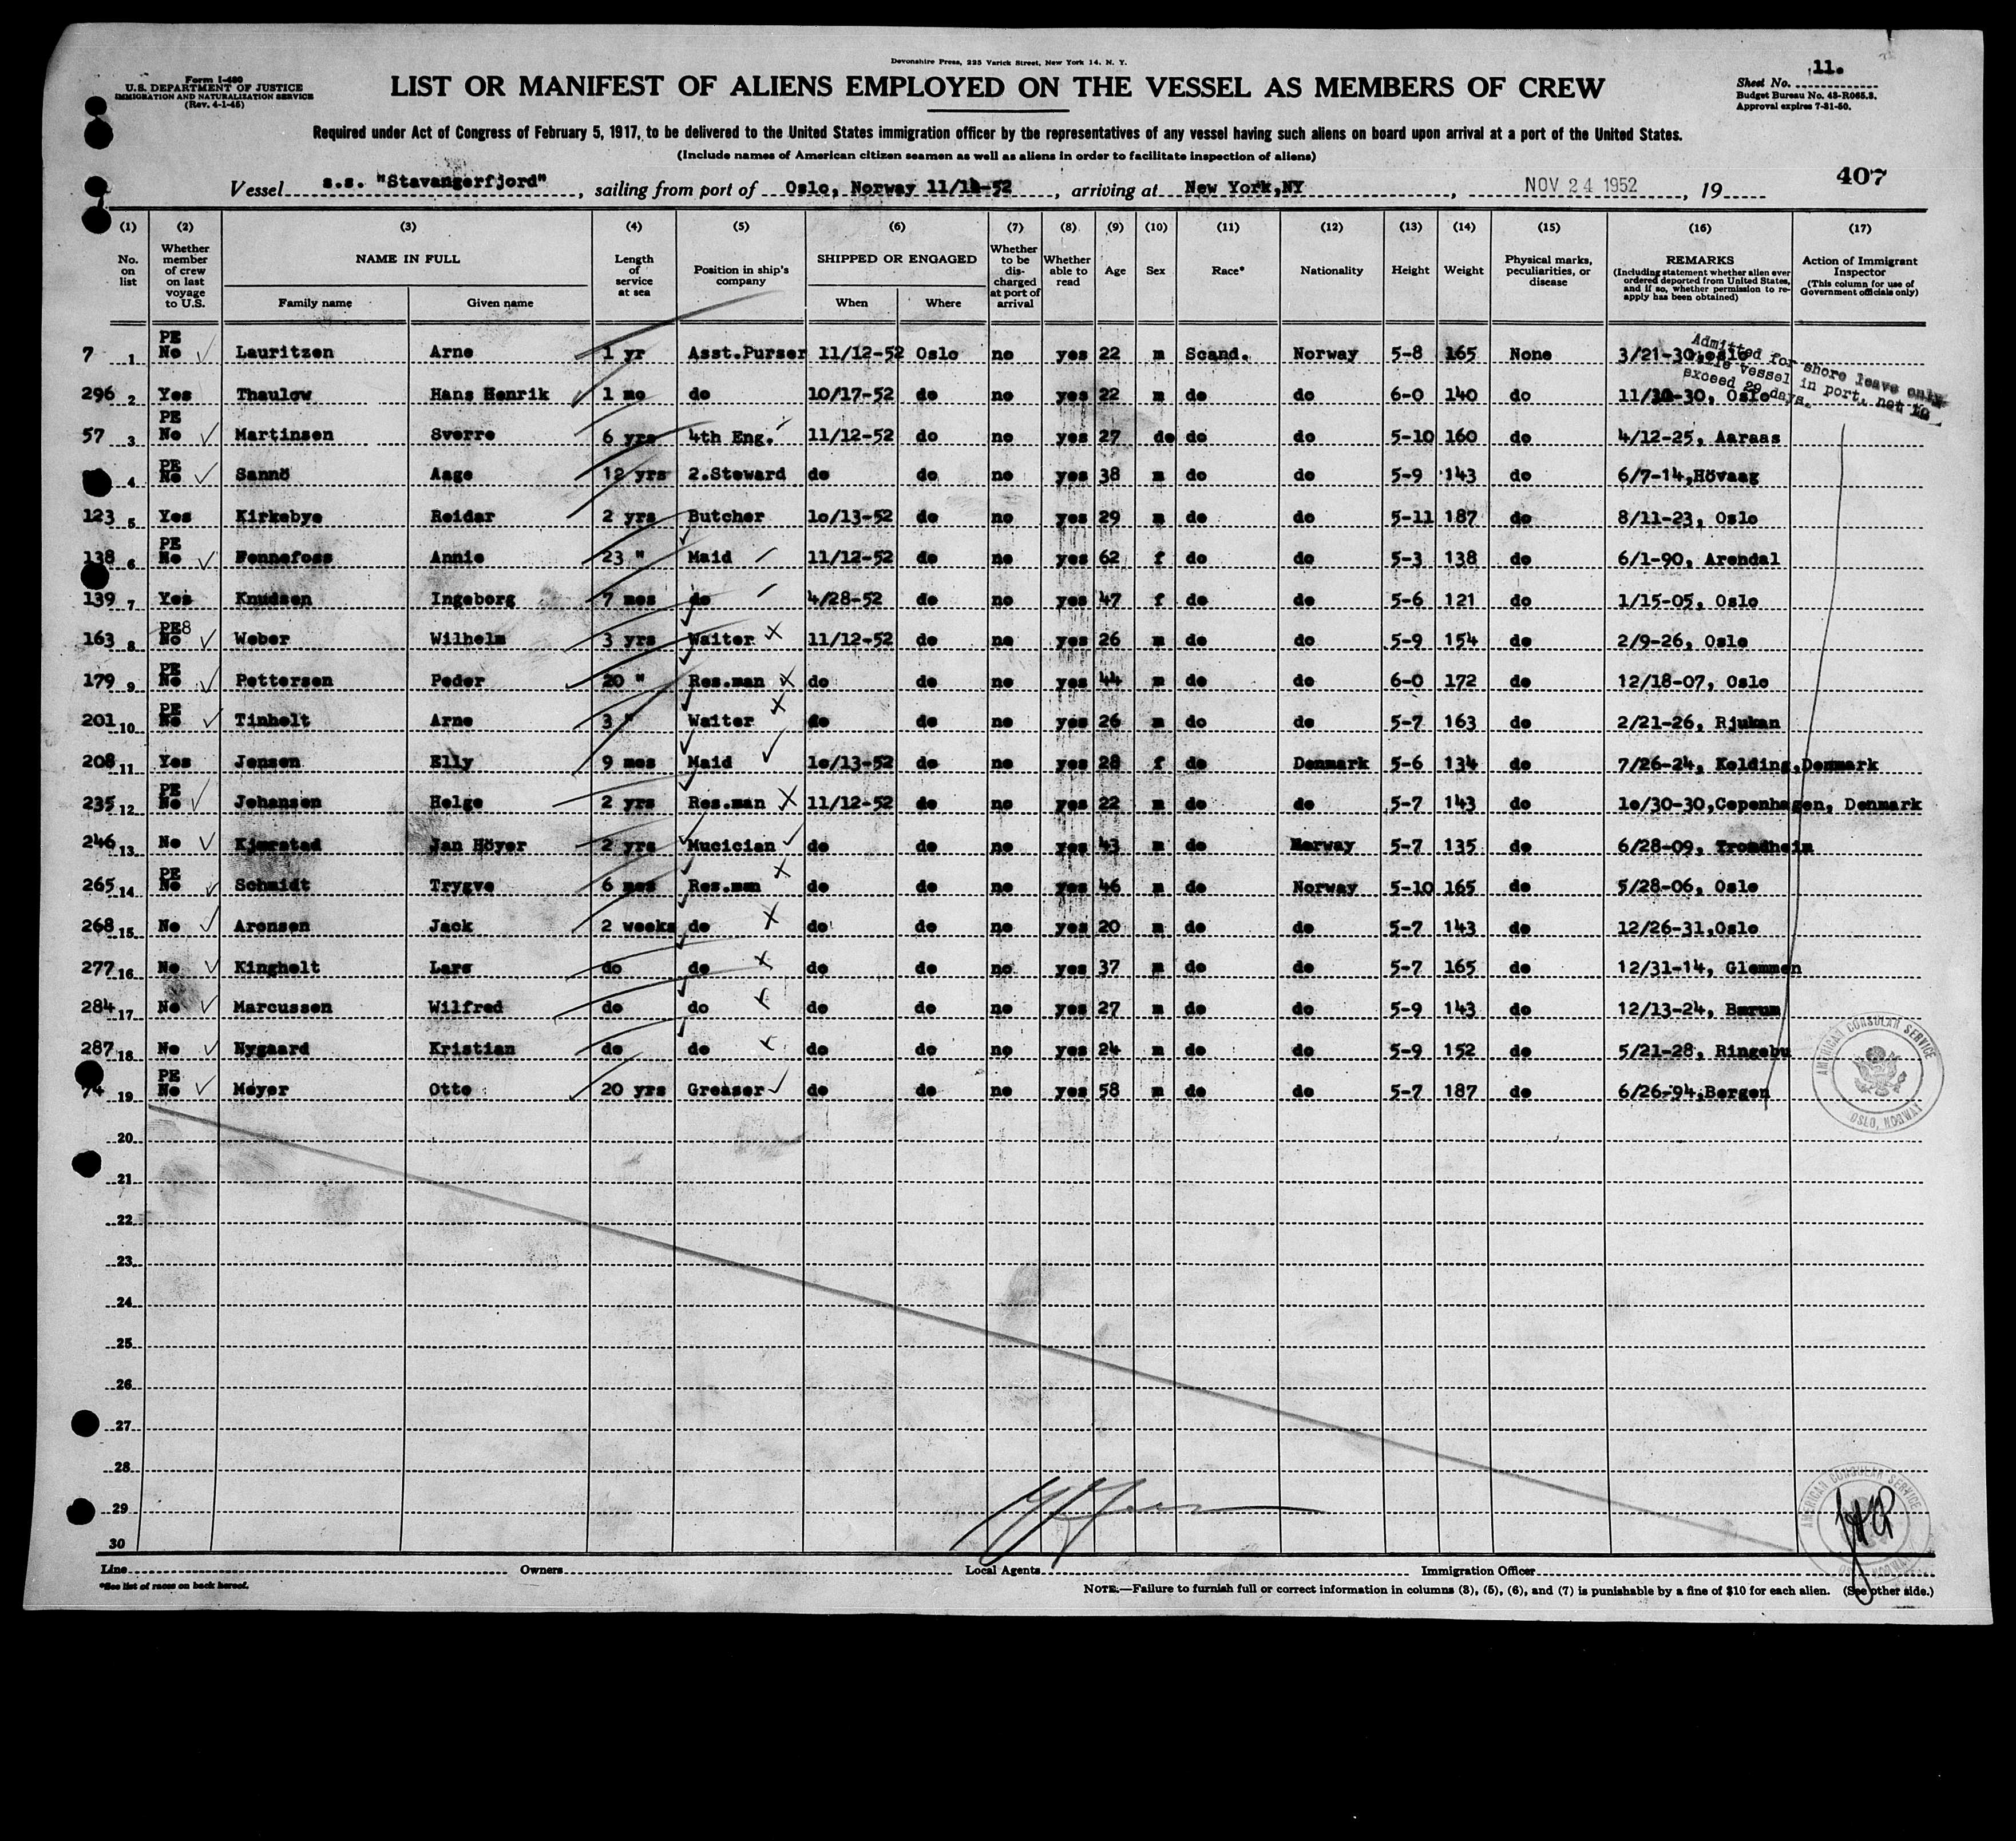 Devonshire Press, 225 Varick Street, New York 14, N. Y.
Form I-480
U.S. DEPARTMENT OF JUSTICE
IMMIGRATION AND NATURALIZATION SERVICE
(Rev. 4-1-45)
LIST OR MANIFEST OF ALIENS EMPLOYED ON THE VESSEL AS MEMBERS OF CREW
Sheet No. 11.
Budget Bureau No. 43-R065.3.
Approval expires 7-31-50.
Required under Act of Congress of February 5, 1917, to be delivered to the United States immigration officer by the representatives of any vessel having such aliens on board upon arrival at a port of the United States.
(Include names of American citizen seamen as well as aliens in order to facilitate inspection of aliens)
407
Vessel s.s. "Stavangerfjord", sailing from port of Oslo, Norway 11/12-52, arriving at New York,NY, NOV 24 1952, 19
(1) (2) (3) (4) (5) (6) (7) (8) (9) (10) (11) (12) (13) (14) (15) (16) (17)
No. on list
Whether member of crew on last voyage to U.S.
NAME IN FULL
Family name Given name
Length of service at sea
Position in ship's company
SHIPPED OR ENGAGED
When Where
Whether to be discharged at port of arrival
Whether able to read
Age Sex Race* Nationality Height Weight
Physical marks, peculiarities, or disease
REMARKS
(Including statement whether alien ever ordered deported from United States, and if so, whether permission to reapply has been obtained)
Action of Immigrant Inspector
(This column for use of Government officials only)
7 1 PE No Lauritzen Arne 1 yr Asst.Purser 11/12-52 Oslo no yes 22 m Scand. Norway 5-8 165 None 3/21-30,oslo
Admitted for shore leave only
while vessel in port, not to
exceed 29 days.
296 2 Yes Thaulow Hans Henrik 1 mo do 10/17-52 do no yes 22 m do do 6-0 140 do 11/30-30, Oslo
57 3 PE No Martinsen Sverre 6 yrs 4th Eng. 11/12-52 do no yes 27 do do do 5-10 160 do 4/12-25, Aaraas
4 PE No Sannö Aage 12 yrs 2.Steward do do no yes 38 m do do 5-9 143 do 6/7-14,Hövaag
123 5 Yes Kirkebye Reidar 2 yrs Butcher 1o/13-52 do no yes 29 m do do 5-11 187 do 8/11-23, Oslo
138 6 PE No Fennefoss Annie 23 " Maid 11/12-52 do no yes 62 f do do 5-3 138 do 6/1-90, Arendal
139 7 Yes Knudsen Ingeborg 7 mos do 4/28-52 do no yes 47 f do do 5-6 121 do 1/15-05, Oslo
163 8 PE8 No Weber Wilhelm 3 yrs Waiter 11/12-52 do no yes 26 m do do 5-9 154 do 2/9-26, Oslo
179 9 PE No Pettersen Peder 20 " Res.man do do no yes 44 m do do 6-0 172 do 12/18-07, Oslo
201 10 PE No Tinholt Arne 3 " Waiter do do no yes 26 m do do 5-7 163 do 2/21-26, Rjukan
208 11 Yes Jensen Elly 9 mos Maid 1o/13-52 do no yes 28 f do Denmark 5-6 134 do 7/26-24, Kolding,Denmark
235 12 PE No Johansen Helge 2 yrs Res.man 11/12-52 do no yes 22 m do do 5-7 143 do 1o/30-30,Copenhagen, Denmark
246 13 No Kjørstad Jan Höyer 2 yrs Mucician do do no yes 43 m do Norway 5-7 135 do 6/28-09, Trondheim
265 14 PE No Schmidt Trygve 6 mos Res.man do do no yes 46 m do Norway 5-10 165 do 5/28-06, Oslo
268 15 No Aronsen Jack 2 weeks do do do no yes 20 m do do 5-7 143 do 12/26-31,Oslo
277 16 No Kingholt Lars do do do do no yes 37 m do do 5-7 165 do 12/31-14, Glemmen
284 17 No Marcussen Wilfred do do do do no yes 27 m do do 5-9 143 do 12/13-24, Bærum
287 18 No Nygaard Kristian do do do do no yes 24 m do do 5-9 152 do 5/21-28, Ringebu
74 19 PE No Meyer Otto 20 yrs Greaser do do no yes 58 m do do 5-7 187 do 6/26-94,Bergen
AMERICAN CONSULAR SERVICE
OSLO, NORWAY
20
21
22
23
24
25
26
27
28
29
30
AMERICAN CONSULAR SERVICE
OSLO, NORWAY
Line Owners Local Agents Immigration Officer
*See list of races on back hereof.
NOTE.—Failure to furnish full or correct information in columns (3), (5), (6), and (7) is punishable by a fine of $10 for each alien. (See other side.)